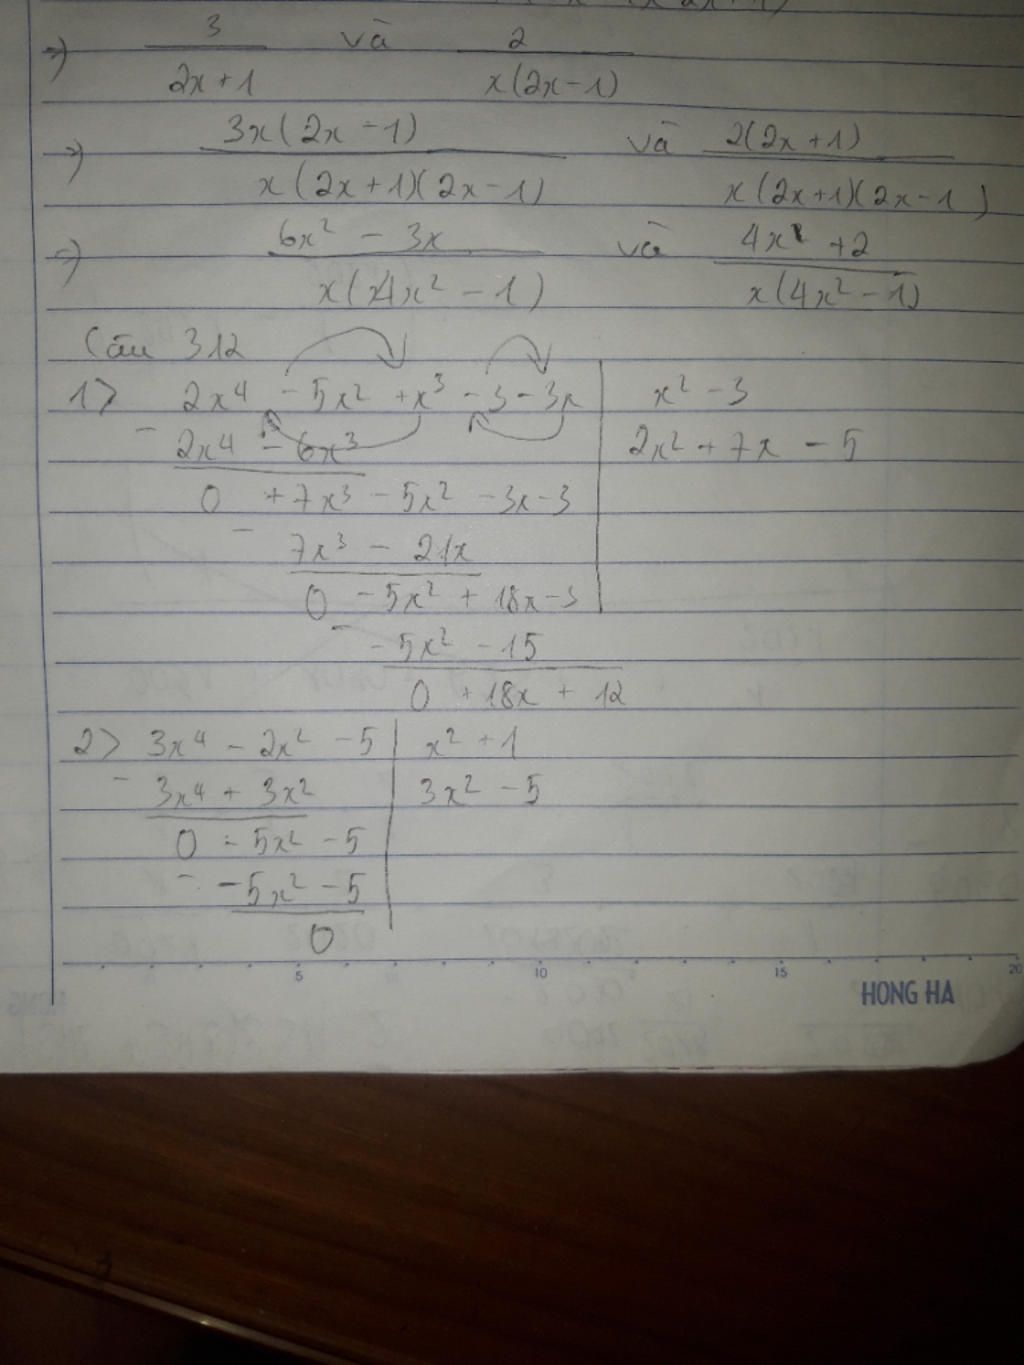 ⇒ 3/(2x+1) và 2/(x(2x-1))
⇒ 3x(2x-1)/(x(2x+1)(2x-1)) và 2(2x+1)/(x(2x+1)(2x-1))
⇒ (6x² - 3x)/(x(4x² - 1)) và (4x + 2)/(x(4x² - 1))
Câu 312
1> 2x⁴ - 5x² + x³ - 3 - 3x | x² - 3
- 2x⁴ - 6x³ | 2x² + 7x - 5
0 + 7x³ - 5x² - 3x - 3
- 7x³ - 21x
0 - 5x² + 18x - 3
- -5x² - 15
0 + 18x + 12
2> 3x⁴ - 2x² - 5 | x² + 1
- 3x⁴ + 3x² | 3x² - 5
0 - 5x² - 5
- -5x² - 5
0
5 10 15 20
HONG HA